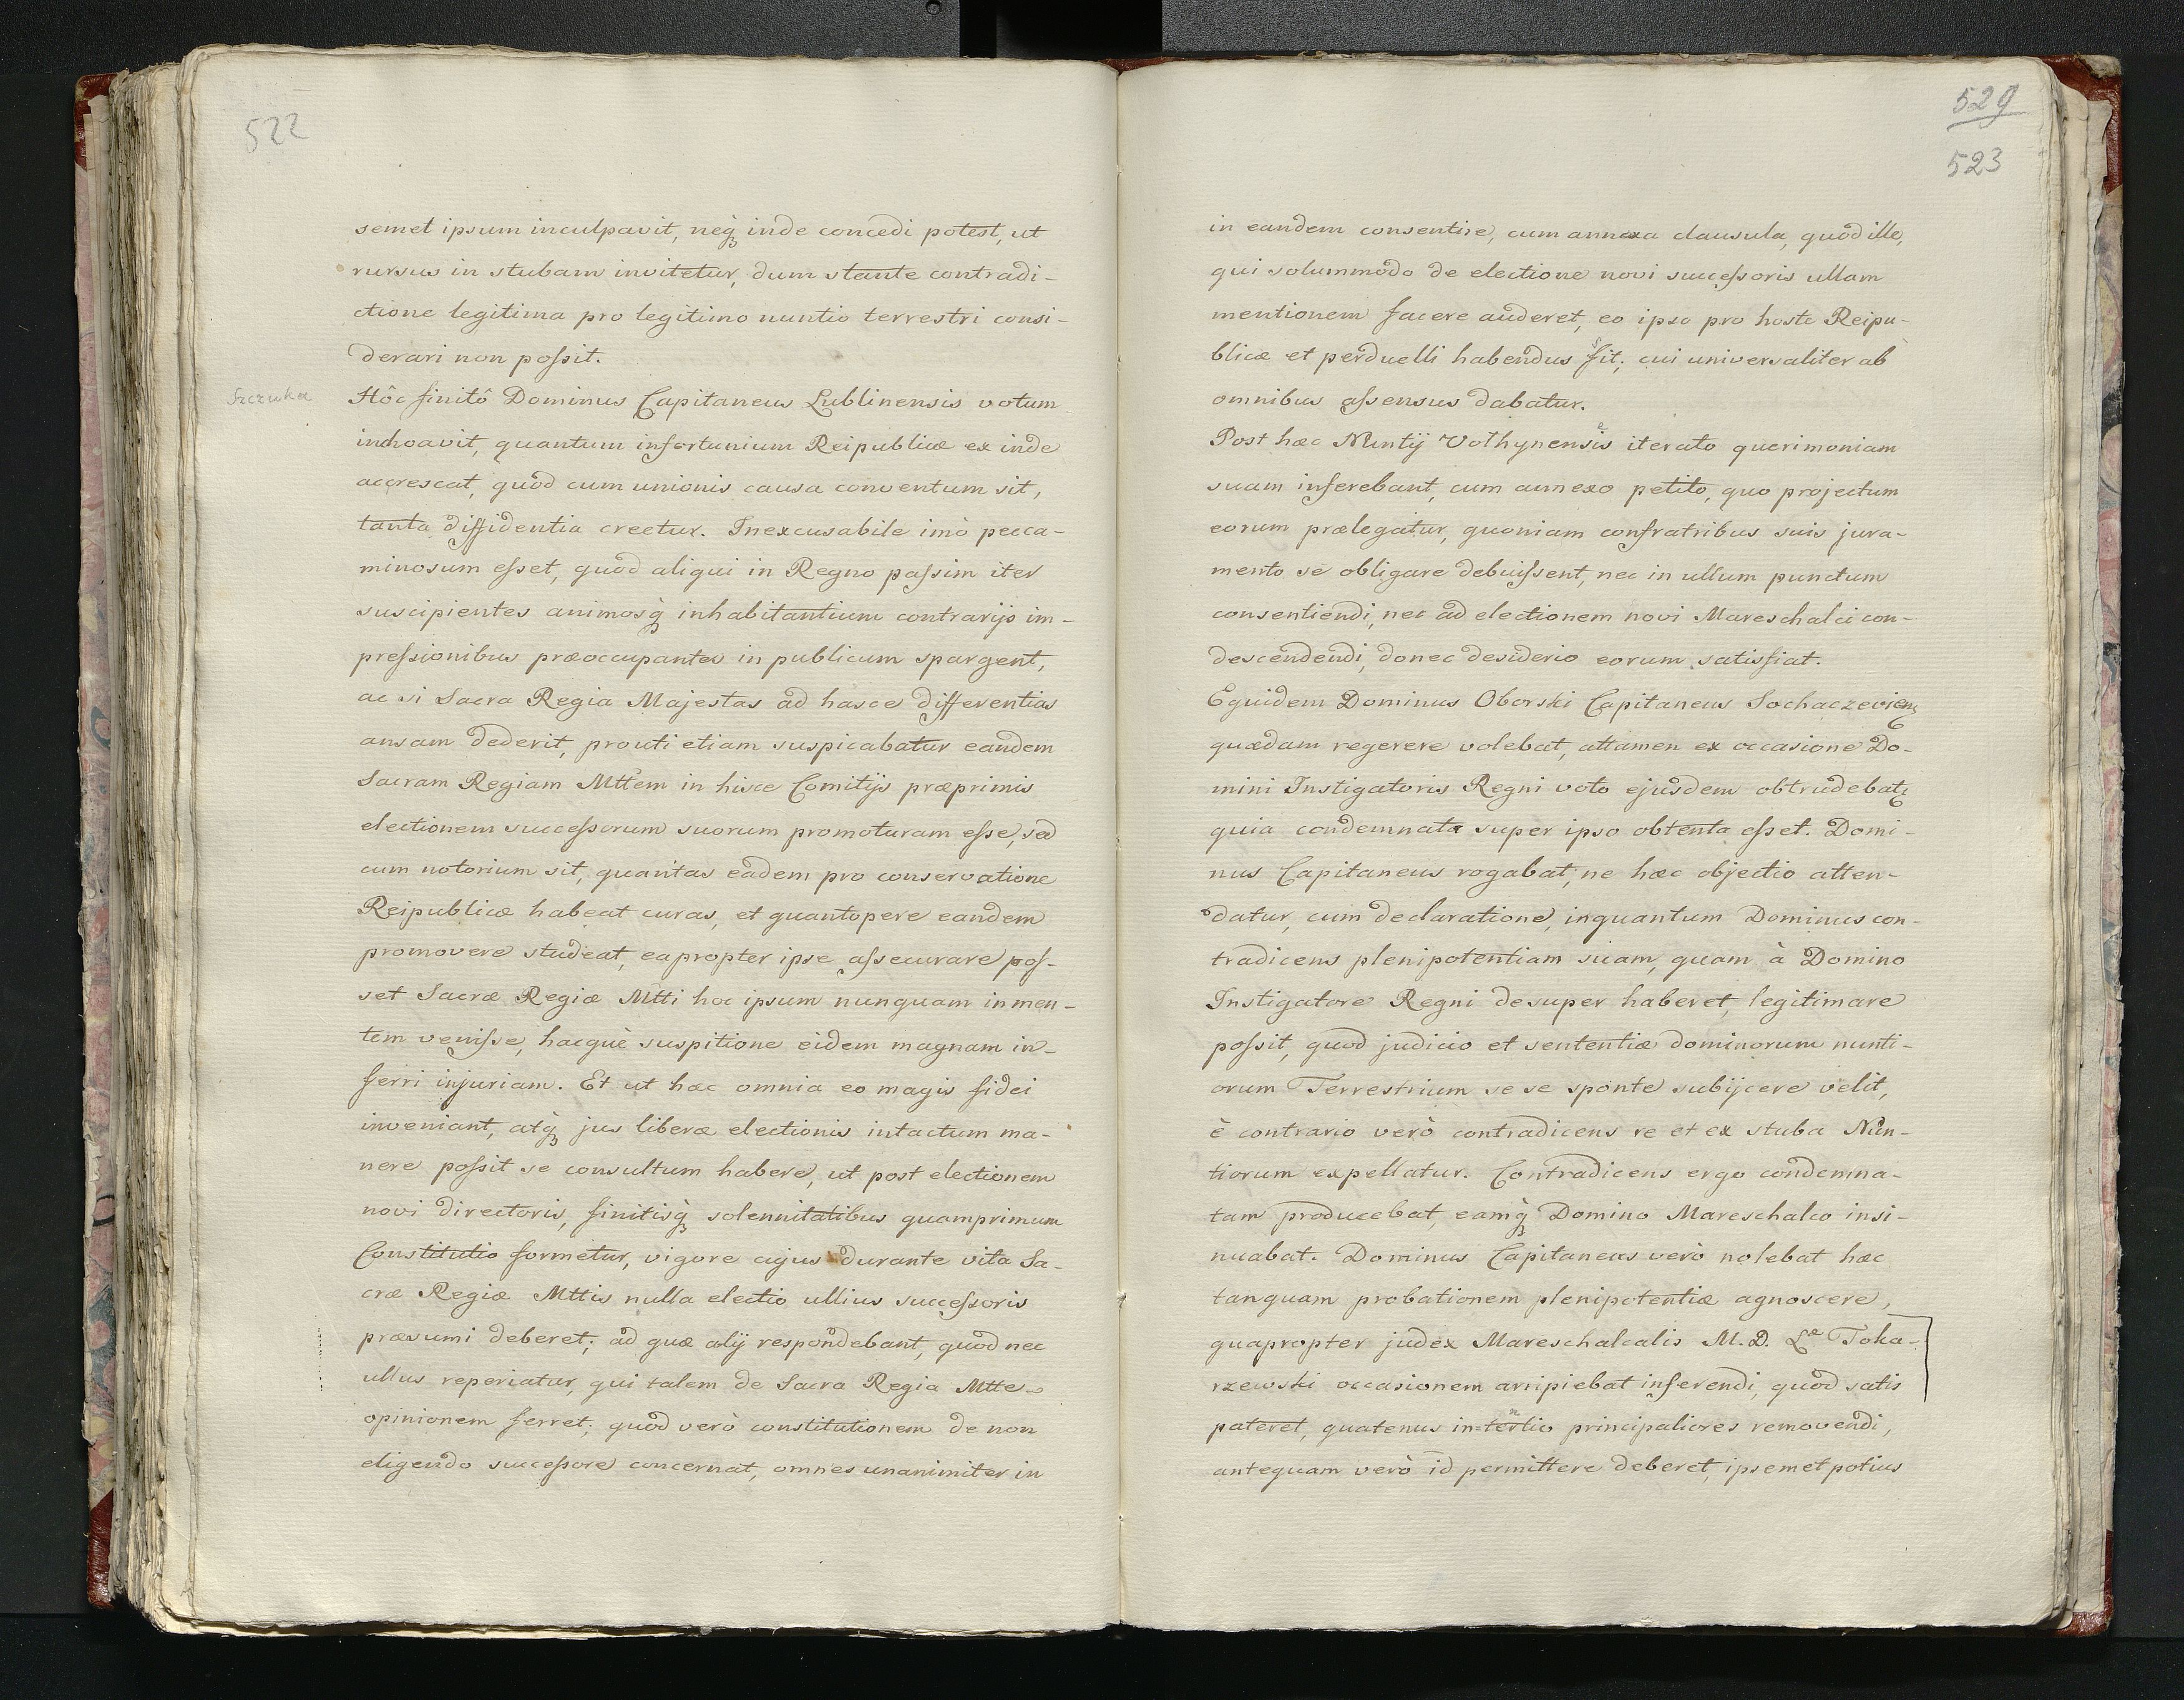 522
semet ipsum inculpavit, neq̃ inde concedi potest, ut
rursus in stubam invitetur, dum stante contradi-
ctione legitima pro legitimo nuntio terrestri consi-
derari non poſsit.
Szczuka
Hôc finitô Dominus Capitaneus Lublinensis votum
inchoavit, quantum infortunium Reipublicæ ex inde
accrescat, quòd cum unionis causa conventum sit,
tanta diffidentia creetur. Inexcusabile imò pecca-
minosum eſset, quòd aliqui in Regno paſsim iter
suscipientes animosq̃ inhabitantium contrarijs im-
preſsionibus præoccupantes in publicum spargent,
ac si Sacra Regia Majestas ad hasce differentias
ansam dederit, prouti etiam suspicabatur eandem
Sacram Regiam Mttem in hisce Comitijs præprimis
electionem succeſsorum suorum promoturam eſse, sed
cum notorium sit, quantas eadem pro conservatione
Reipublicæ habeat curas, et quantopere eandem
promovere studeat, eapropter ipse aſsecurare poſ-
set Sacræ Regiæ Mtti hoc ipsum nunquam in men-
tem veniſse, hacquè suspitione eidem magnam in-
ferri injuriam. Et ut hæc omnia eo magis fidei
inveniant, atq̃ jus liberæ electionis intactum ma-
nere poſsit se consultum habere, ut post electionem
novi directoris, finitisq̃ solennitatibus quamprimum
Constitutio formetur, vigore cujus durante vita Sa-
cræ Regiæ Mttis nulla electio ullius succeſsoris
præsumi deberet; ad quæ alij respondebant, quòd nec
ullus reperiatur, qui talem de Sacra Regia Mtte
opinionem ferret; quòd verò constitutionem de non
eligendo succeſsore concernat, omnes unanimiter in
529
523
in eandem consentire, cum annexa clausula, quòd ille,
qui solummodo de electione novi succeſsoris ullam
mentionem facere auderet, eo ipso pro hoste Reipu-
blicæ et perduelli habendus sit; cui universaliter ab
omnibus aſsensus dabatur.
Post hæc Nuntij Volhynensis iterato querimoniam
suam inferebant, cum annexo petito, quo projectum
eorum prælegatur, quoniam confratribus suis jura-
mento se obligare debuiſsent, nec in ullum punctum
consentiendi, nec ad electionem novi Mareschalci con-
descendendi, donec desiderio eorum satisfiat.
Equidem Dominus Oborski Capitaneus Sochaczevien
quædam regerere volebat, attamen ex occasione Do-
mini Instigatoris Regni voto ejusdem obtrudebat
quia condemnata super ipso obtenta eſset. Domi-
nus Capitaneus rogabat, ne hæc objectio atten-
datur, cum declaratione, inquantum Dominus con-
tradicens plenipotentiam suam, quam à Domino
Instigatore Regni desuper haberet, legitimare
poſsit, quod judicio et sententiæ dominorum nunti-
orum Terrestrium se se sponte subijcere velit,
è contrario verò contradicens re et ex stuba Nun-
tiorum expellatur. Contradicens ergo condemna-
tam producebat, eamq̃ Domino Mareschalco insi-
nuabat. Dominus Capitaneus verò nolebat hæc
tanquam probationem plenipotentiæ agnoscere,
quapropter judex Mareschalcalis M. D. Læ Toka-
rzewski occasionem arripiebat inferendi, quòd satis
pateret, quatenus intentio principaliores removendi,
antequam verò id permittere deberet, ipsemet potius